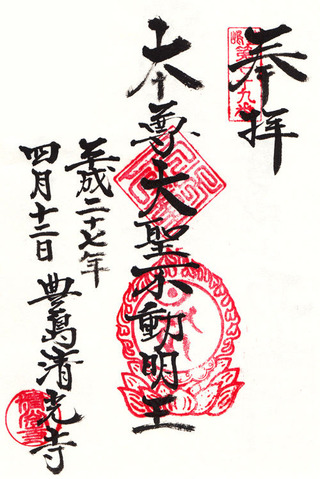 奉拝
本尊大聖不動明王
平成二十七年
四月十二日 豊島清光寺